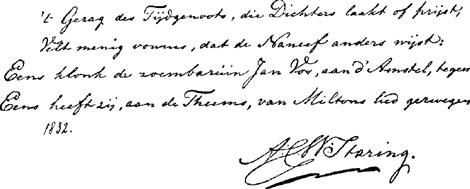 't Gezag des Tijdgenoots, die Dichters laakt of prijst,
Velt menig vonnis, dat de Naneef anders wijst:
Eens klonk de roembazuin Jan Vos, aan d'Amstel, tegen
Eens heeft zij, aan de Theems, van Miltons lied gezwegen
1832.
A.C.W. Staring.